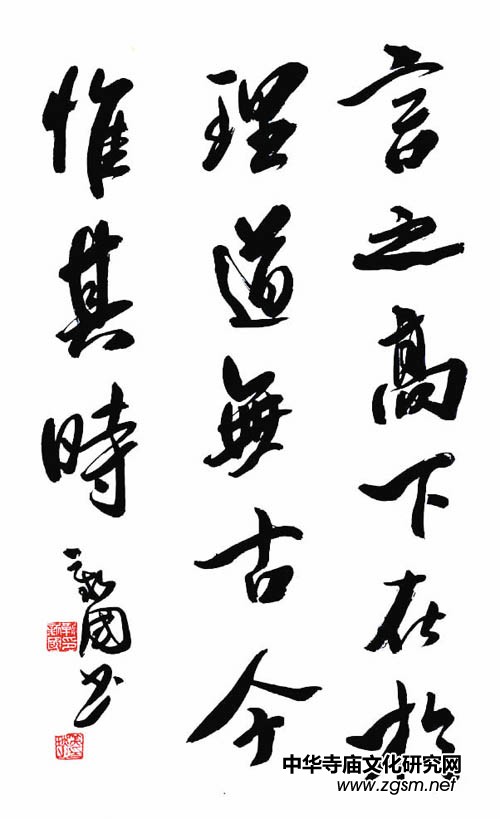 言之高下在於
理道無古今
惟其時
国书
中华寺庙文化研究网
www.zgsm.net